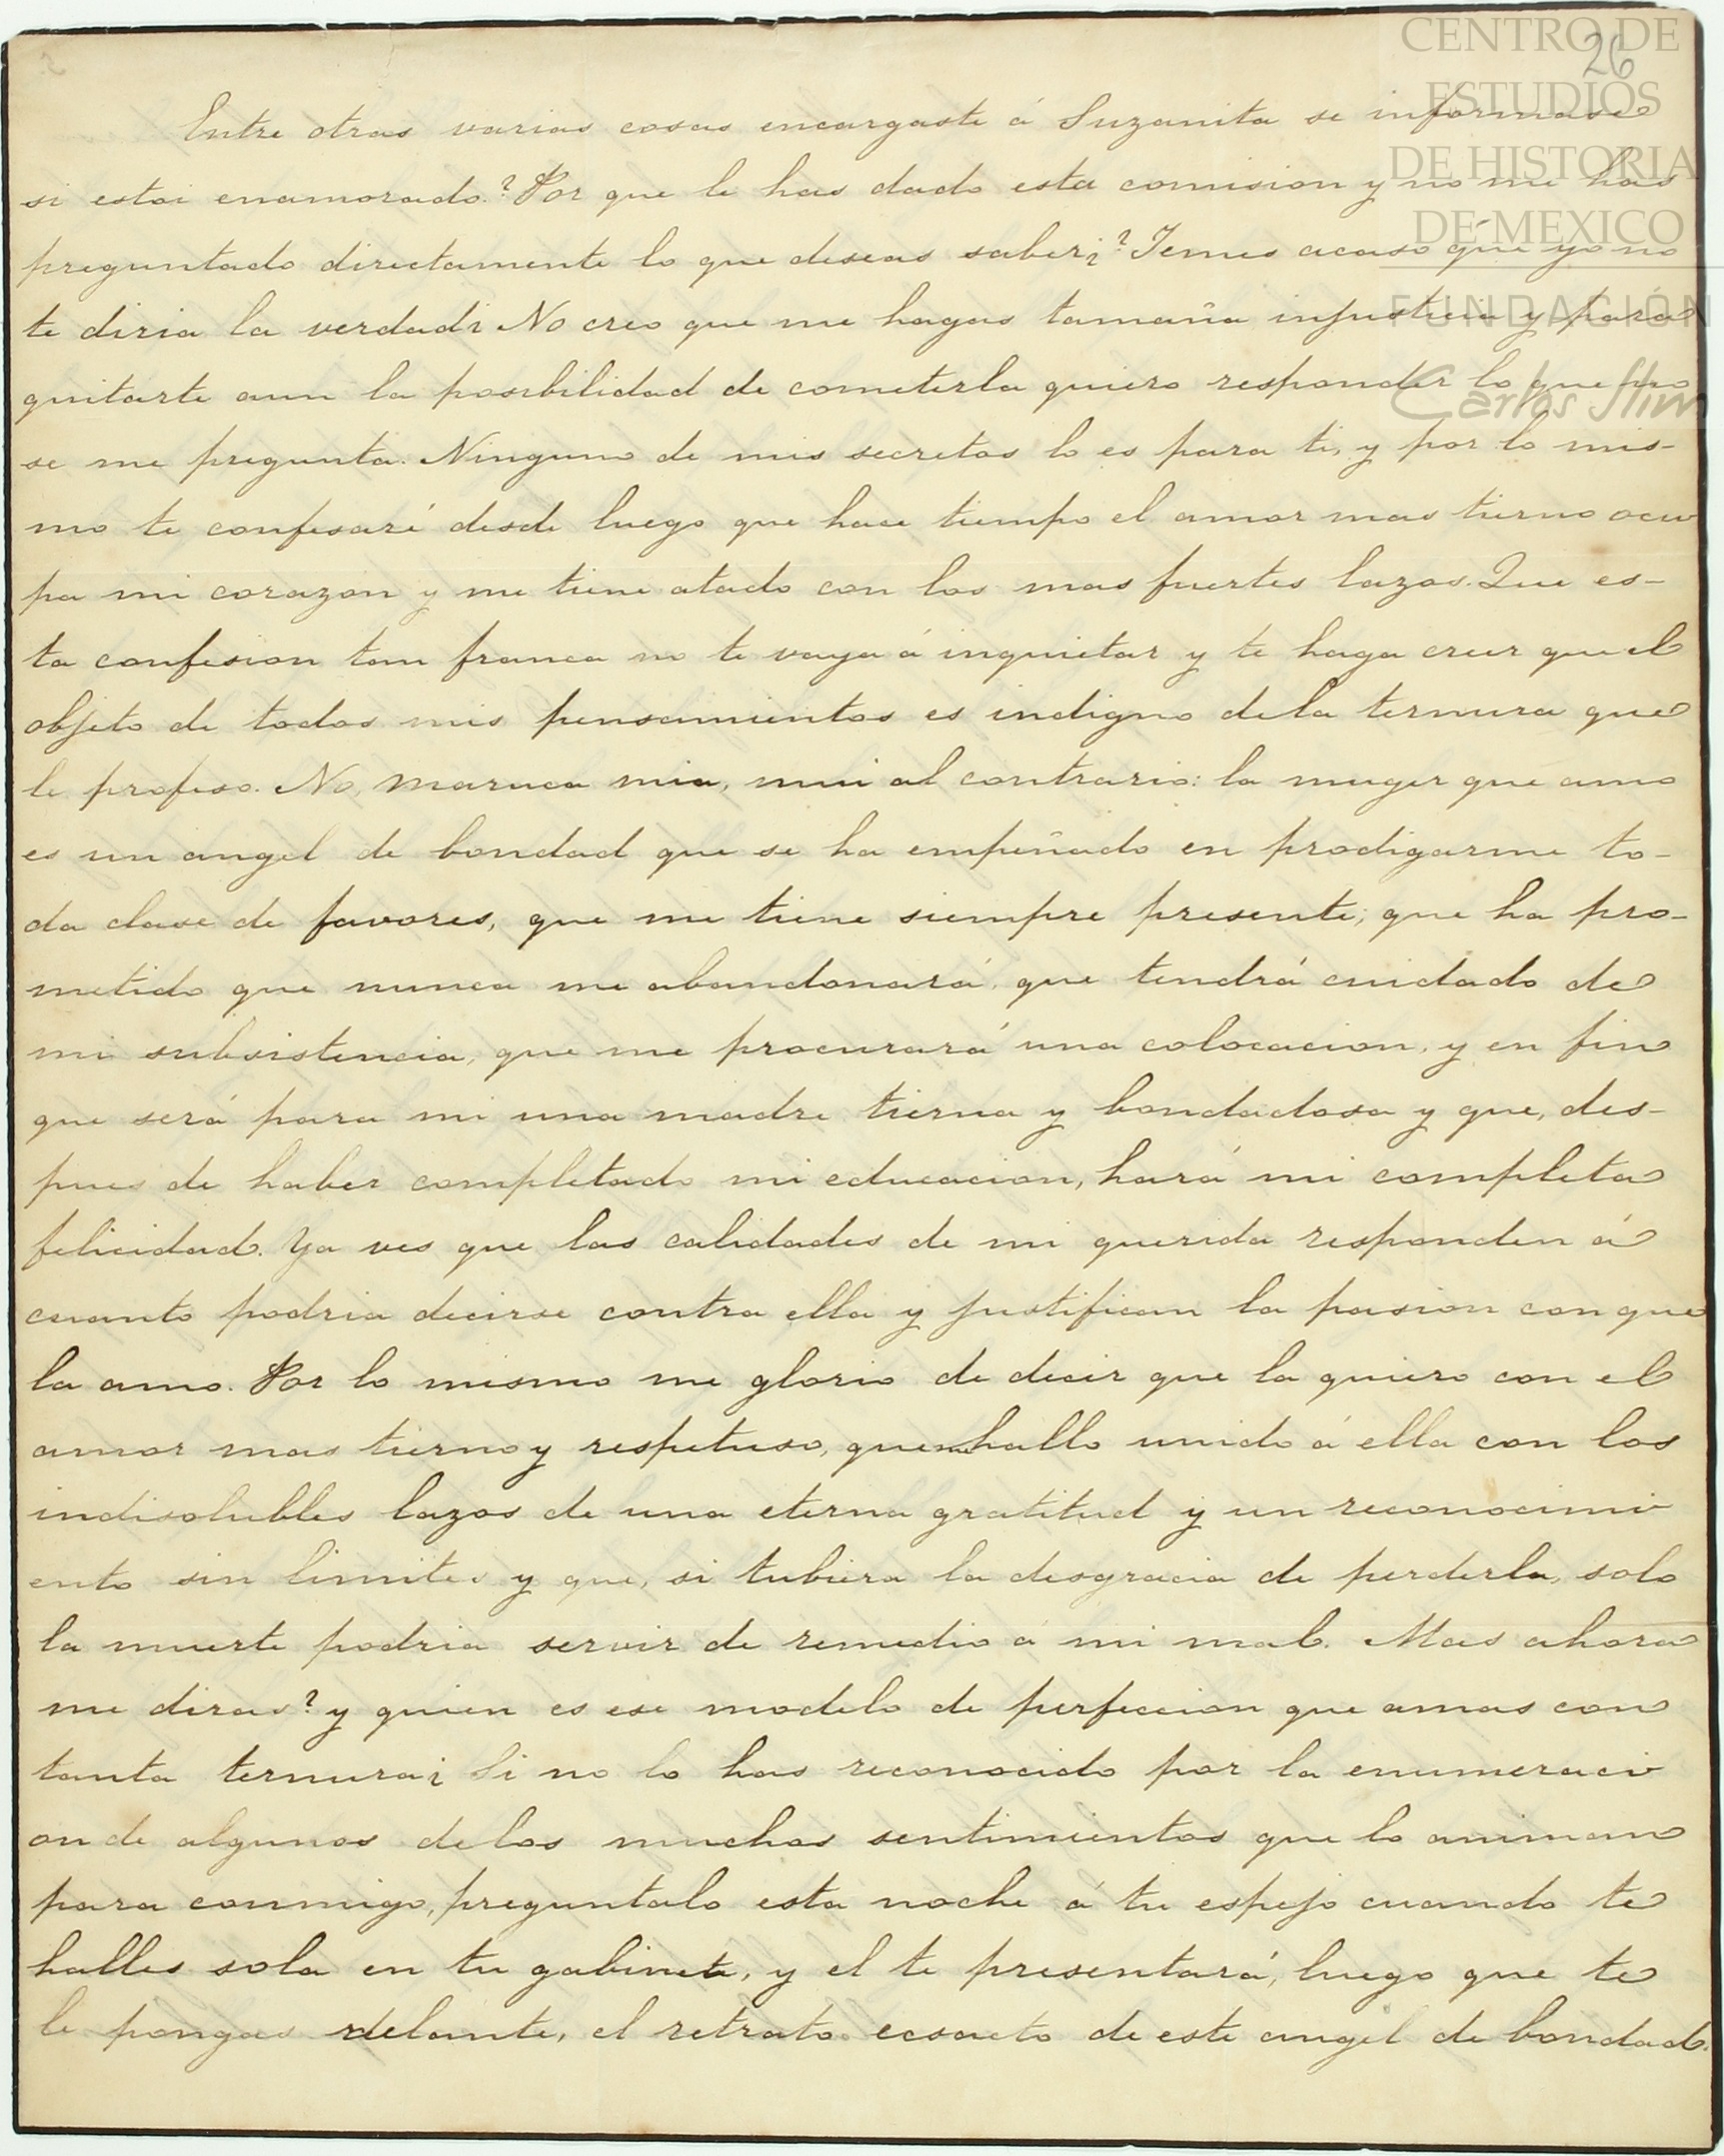 CENTRO DE
ESTUDIOS
DE HISTORIA
DE MEXICO
FUNDACIÓN
Carlos Slim
26
Entre otras varias cosas encargaste á Suzanita se informase
si estoi enamorado. ?Por que le has dado esta comision y no me has
preguntado directamente lo que deseas saber¿ ?Temes acaso que yo no
te diria la verdad¿ No creo que me hagas tamaña injusticia y para
quitarte aun la posibilidad de cometerla quiero responder lo que no
se me pregunta. Ninguno de mis secretos lo es para ti, y por lo mis-
mo te confesaré desde luego que hace tiempo el amor mas tierno ocu
pa mi corazon y me tiene atado con los mas fuertes lazos. Que es-
ta confesion tan franca no te vaya á inquietar y te haga creer que el
objeto de todos mis pensamientos es indigno dela ternura que
le profeso. No, maruca mia, mui al contrario: la muger que amo
es un angel de bondad que se ha empeñado en prodigarme to-
da clase de favores, que me tiene siempre presente; que ha pro-
metido que nunca me abandonará, que tendrá cuidado de
mi subsistencia, que me procurará una colocacion, y en fin
que será para mi una madre tierna y bondadosa y que, des-
pues de haber completado mi educacion, hará mi completa
felicidad. Ya ves que las calidades de mi querida responden á
cuanto podria decirse contra ella y justifican la pasion con que
la amo. Por lo mismo me glorio de decir que la quiero con el
amor mas tierno y respetuso, que me hallo unido á ella con los
indisolubles lazos de una eterna gratitud y un reconocimi
ento sin limites y que, si tubiera la desgracia de perderla, solo
la muerte podria servir de remedio á mi mal. Mas ahora
me diras ?y quien es ese modelo de perfeccion que amas con
tanta ternura¿ Si no lo has reconocido por la enumeraci
on de algunos delos muchos sentimientos que lo animan
para conmigo, preguntalo esta noche á tu espejo cuando te
halles sola en tu gabinete, y el te presentará, luego que te
le pongas delante, el retrato ecsacto de este angel de bondad.